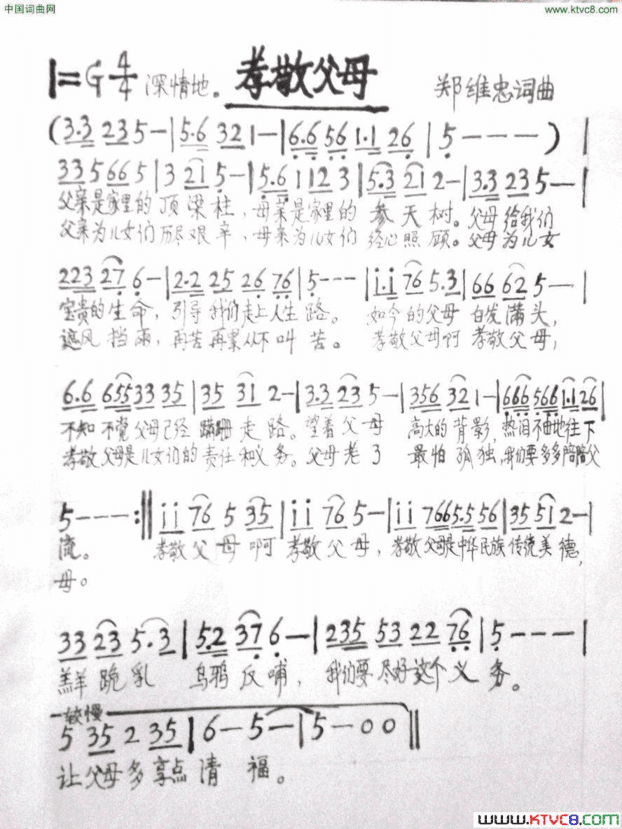 中国词曲网
www.ktvc8.com
1=G 4/4 深情地。 孝敬父母 郑维忠词曲
(3.3 235-|5.6 321-|6.6 56 1.1 26|5---)|
335665|3 21 5-|5.6 1123|5.3 212-|3.3 235-|
父亲是家里的顶梁柱,母亲是家里的参天树。父母给我们
父亲为儿女们历尽艰辛,母亲为儿女们 照顾。父母为儿女
223 27 6-|2.2 25 26 76|5---|i.i 76 5.3|66 62 5-|
宝贵的生命,引导我们走上人生路。如今的父母白发满头,
遮风挡雨,再苦再累从不叫苦。孝敬父母啊孝敬父母,
6.6 655 33 35|35 31 2-|3.3 23 5-|356 321-|666 566 1.1 26|
不知不觉父母已经蹒跚走路。望着父母高大的背影,热泪不由地往下
孝敬父母是儿女们的责任和义务。父母老了最怕孤独,我们要多多陪陪父
5---:‖ii 76 5 35|ii 76 5-|ii 7665.5 56|35 51 2-|
流。 孝敬父母啊孝敬父母,孝敬父母是中华民族传统美德,
母。
33 23 5.3|5.2 37 6-|235 53 22 76|5---|
羔羊跪乳 乌鸦反哺,我们要尽好这个义务。
较慢
5 35 2 35|6-5-|5-00‖
让父母多享点清福。
www.KTVC8.com